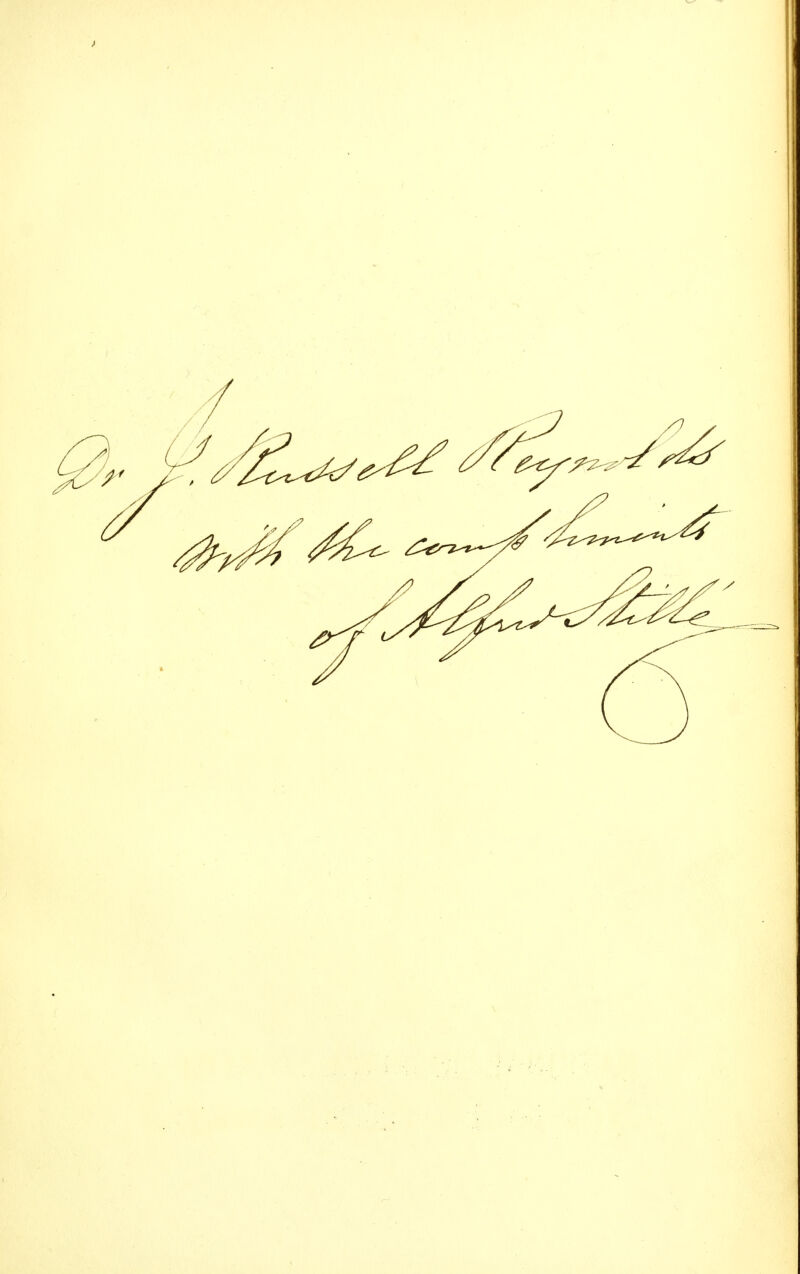 Dr J. Russell Reynolds
With the compliments
of Alfred Stillé